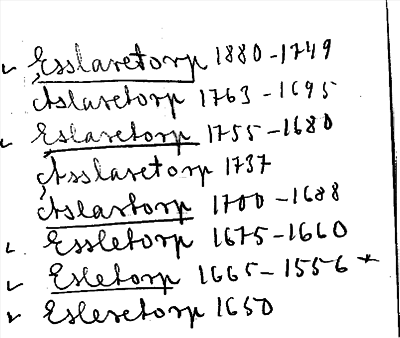 ✓ Esslaretorp 1880-1749
Aslaretorp 1763-1695
✓ Eslaretorp 1755-1680
Asslaretorp 1737
Aslartorp 1700-1688
✓ Essletorp 1675-1660
✓ Esletorp 1665-1556 *
✓ Esleretorp 1650